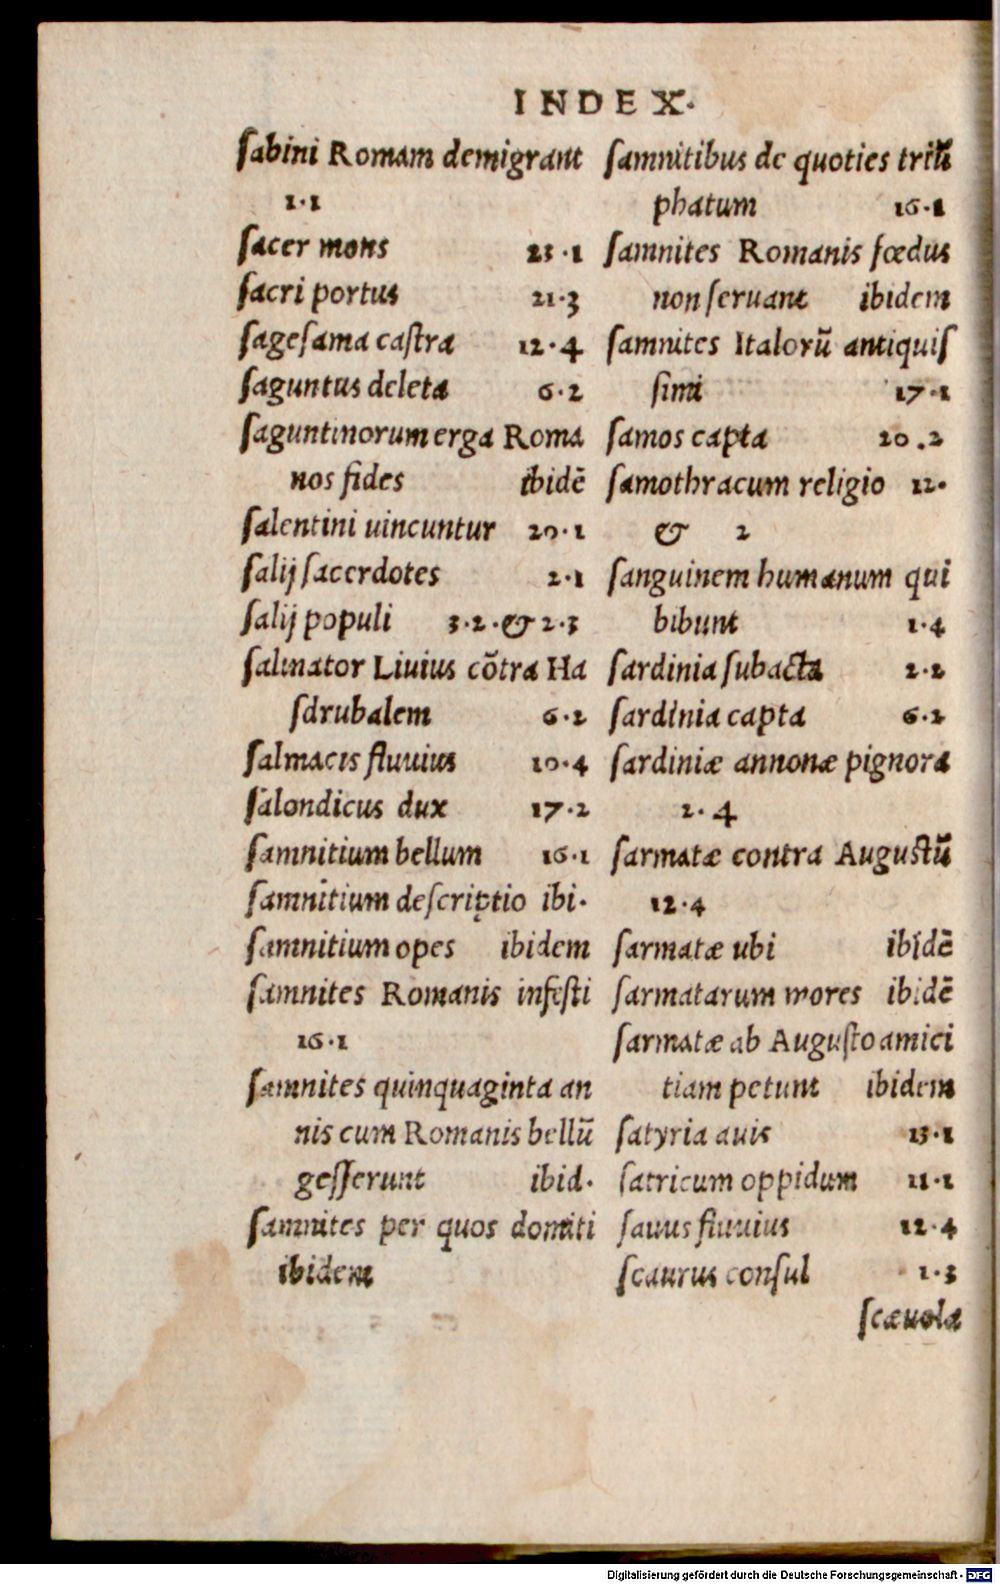 INDEX.
ſabini Romam demigrant
1.1
ſacer mons 23.1
ſacri portus 21.3
ſageſama caſtra 12.4
ſaguntus deleta 6.2
ſaguntinorum erga Roma
nos fides ibidē
ſalentini uincuntur 20.1
ſalij ſacerdotes 2.1
ſalij populi 3.2.& 2.3
ſalinator Liuius cōtra Ha
ſdrubalem 6.2
ſalmacis fluuius 10.4
ſalondicus dux 17.2
ſamnitium bellum 16.1
ſamnitium deſcriptio ibi.
ſamnitium opes ibidem
ſamnites Romanis infeſti
16.1
ſamnites quinquaginta an
nis cum Romanis bellū
geſſerunt ibid.
ſamnites per quos domiti
ibidem
ſamnitibus de quoties triū
phatum 16.1
ſamnites Romanis fœdus
non ſeruant ibidem
ſamnites Italorū antiquiſ
ſimi 17.1
ſamos capta 20.2
ſamothracum religio 12.
& 2
ſanguinem humanum qui
bibunt 1.4
ſardinia ſubacta 2.2
ſardinia capta 6.2
ſardiniæ annonæ pignora
2.4
ſarmatæ contra Auguſtū
12.4
ſarmatæ ubi ibidē
ſarmatarum mores ibidē
ſarmatæ ab Auguſto amici
tiam petunt ibidem
ſatyria auis 13.1
ſatricum oppidum 11.1
ſauus fluuius 12.4
ſcaurus conſul 1.3
ſcæuola
Digitalisierung gefördert durch die Deutsche Forschungsgemeinschaft - DFG